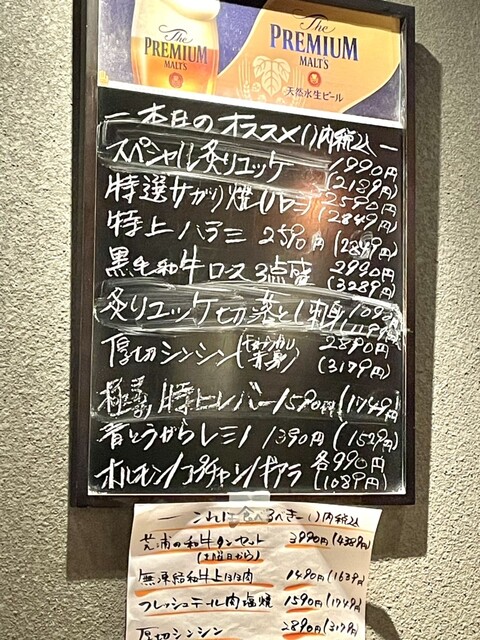 The
PREMIUM
MALT'S
The
PREMIUM
MALT'S
天然水生ビール
ー本日のオススメ()内税込ー
スペシャル炙りユッケ 1990円
(2189円)
特選サガリ 2590円
(2849円)
特上ハラミ 2590円(2849円)
黒毛和牛ロース3点盛 2990円
(3289円)
炙りユッケ切り落とし刺身
厚切シンシン 2890円
(3179円)
特上レバー1590円(1749円)
青とうがらし 1390円(1529円)
ホルモン/コプチャン/ギアラ 各990円
(1089円)
()内税込
の和牛タンセット 3990円(4389円)
(土曜日から)
無凍結和牛上 1490円(1639円)
フレッシュテール肉塩焼 1590円(1749円)
厚切シンシン 2890円(3179円)